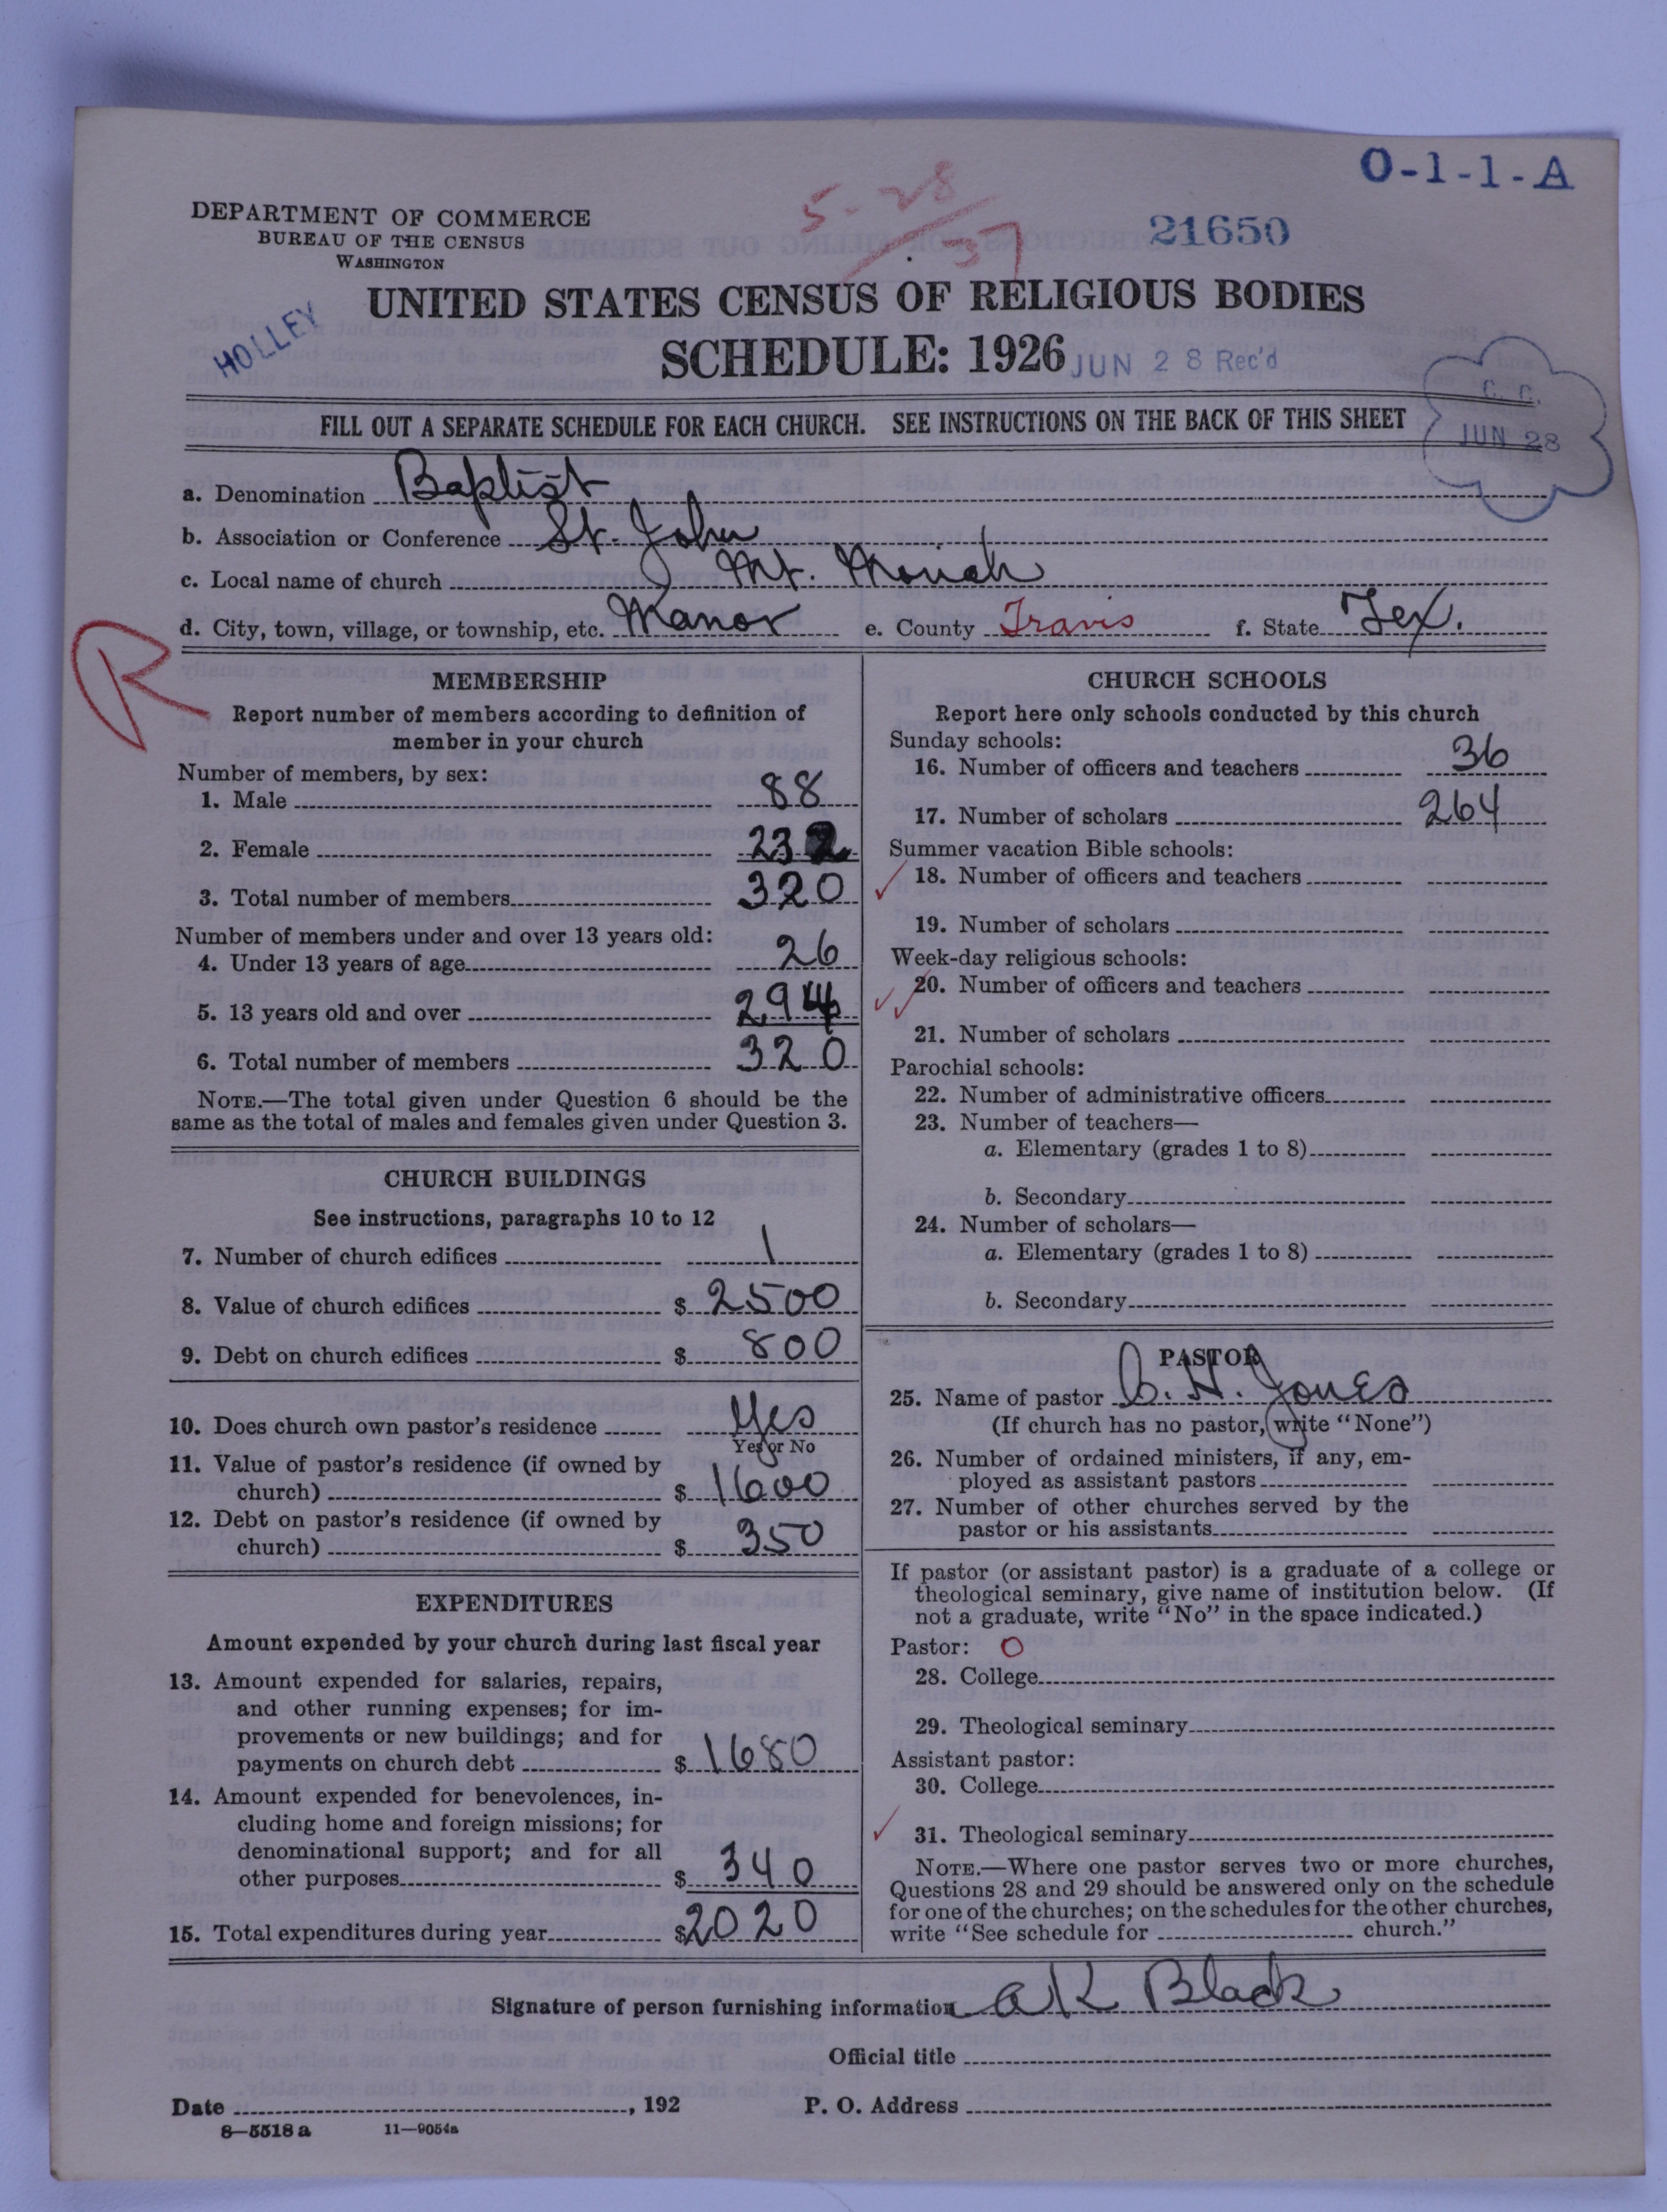 O-1-1-A
5-28/37
21650
DEPARTMENT OF COMMERCE
BUREAU OF THE CENSUS
WASHINGTON
HOLLEY
UNITED STATES CENSUS OF RELIGIOUS BODIES
SCHEDULE: 1926
JUN 28 Rec'd
C. C.
JUN 28
FILL OUT A SEPARATE SCHEDULE FOR EACH CHURCH. SEE INSTRUCTIONS ON THE BACK OF THIS SHEET
a. Denomination Baptist
b. Association or Conference St. John
c. Local name of church Mt. Moriah
d. City, town, village, or township, etc. Manor e. County Travis f. State Tex.
R
MEMBERSHIP
Report number of members according to definition of
member in your church
Number of members, by sex:
1. Male 88
2. Female 232
3. Total number of members 320
Number of members under and over 13 years old:
4. Under 13 years of age 26
5. 13 years old and over 294
6. Total number of members 320
NOTE.—The total given under Question 6 should be the
same as the total of males and females given under Question 3.
CHURCH BUILDINGS
See instructions, paragraphs 10 to 12
7. Number of church edifices 1
8. Value of church edifices $ 2500
9. Debt on church edifices $ 800
10. Does church own pastor's residence Yes
Yes or No
11. Value of pastor's residence (if owned by
church) $ 1600
12. Debt on pastor's residence (if owned by
church) $ 350
EXPENDITURES
Amount expended by your church during last fiscal year
13. Amount expended for salaries, repairs,
and other running expenses; for im-
provements or new buildings; and for
payments on church debt $ 1680
14. Amount expended for benevolences, in-
cluding home and foreign missions; for
denominational support; and for all
other purposes $ 340
15. Total expenditures during year $ 2020
CHURCH SCHOOLS
Report here only schools conducted by this church
Sunday schools:
16. Number of officers and teachers 36
17. Number of scholars 264
Summer vacation Bible schools:
18. Number of officers and teachers
19. Number of scholars
Week-day religious schools:
20. Number of officers and teachers
21. Number of scholars
Parochial schools:
22. Number of administrative officers
23. Number of teachers—
a. Elementary (grades 1 to 8)
b. Secondary
24. Number of scholars—
a. Elementary (grades 1 to 8)
b. Secondary
PASTOR
25. Name of pastor C. H. Jones
(If church has no pastor, write "None")
26. Number of ordained ministers, if any, em-
ployed as assistant pastors
27. Number of other churches served by the
pastor or his assistants
If pastor (or assistant pastor) is a graduate of a college or
theological seminary, give name of institution below. (If
not a graduate, write "No" in the space indicated.)
Pastor: O
28. College
29. Theological seminary
Assistant pastor:
30. College
31. Theological seminary
NOTE.—Where one pastor serves two or more churches,
Questions 28 and 29 should be answered only on the schedule
for one of the churches; on the schedules for the other churches,
write "See schedule for church."
Signature of person furnishing information A K Black
Official title
Date , 192 P. O. Address
8—5518 a 11—9054a